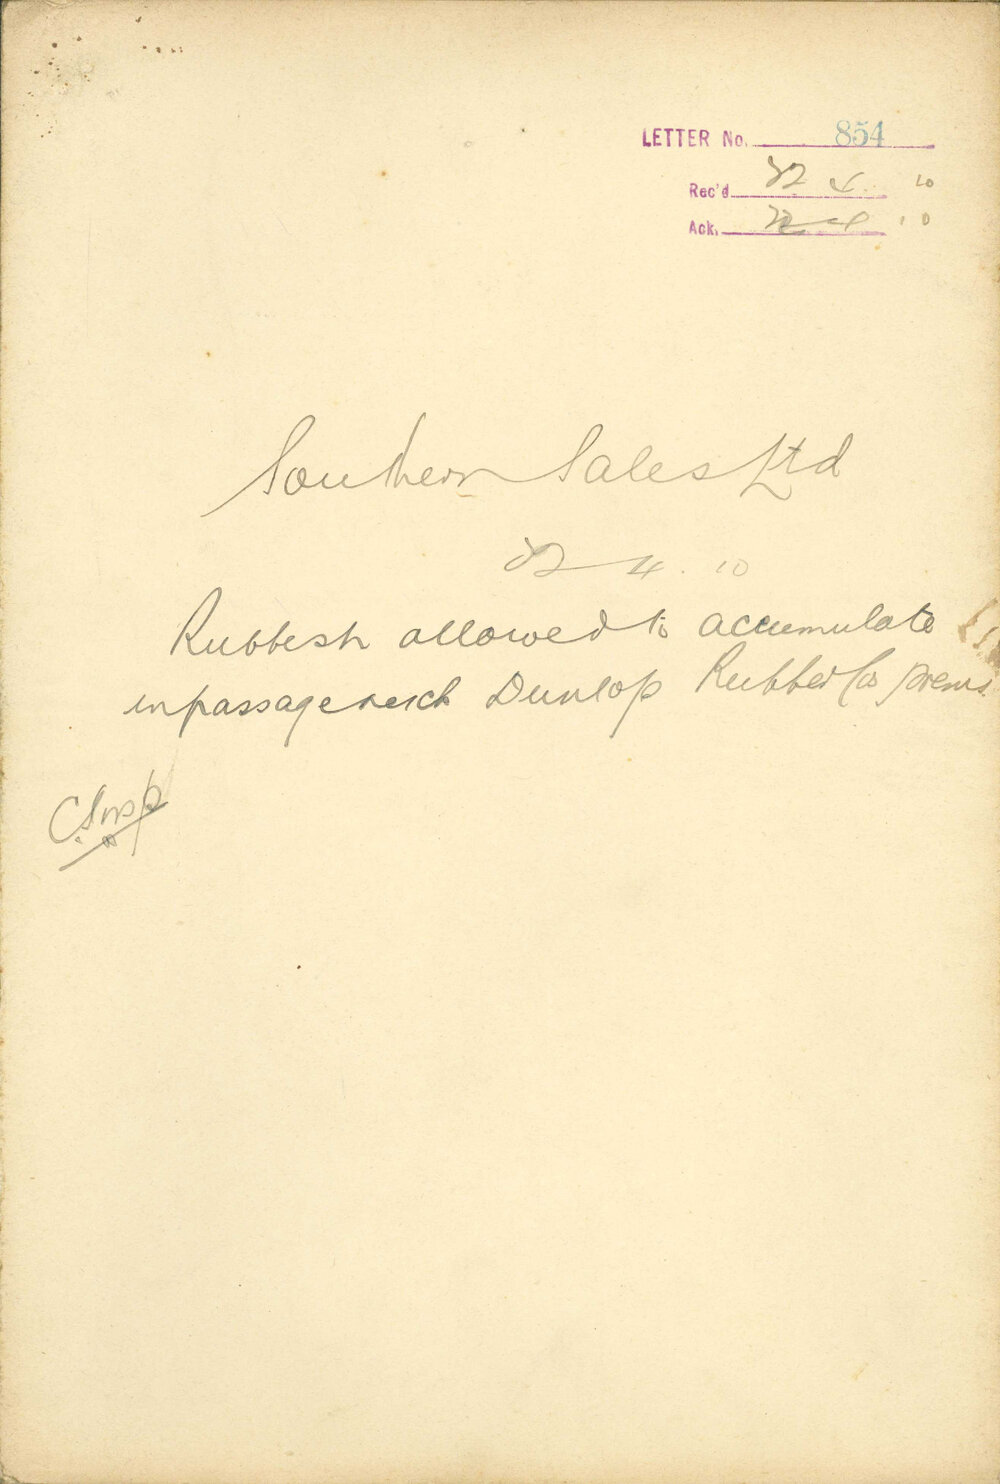 LETTER No. 854
Rec'd 22 4 10
Ack. 22 4 10
Southern Sales Ltd
22 4. 10
Rubbish allowed to accumulate
in passage Dunlop Rubber Co prems.
C. Insp